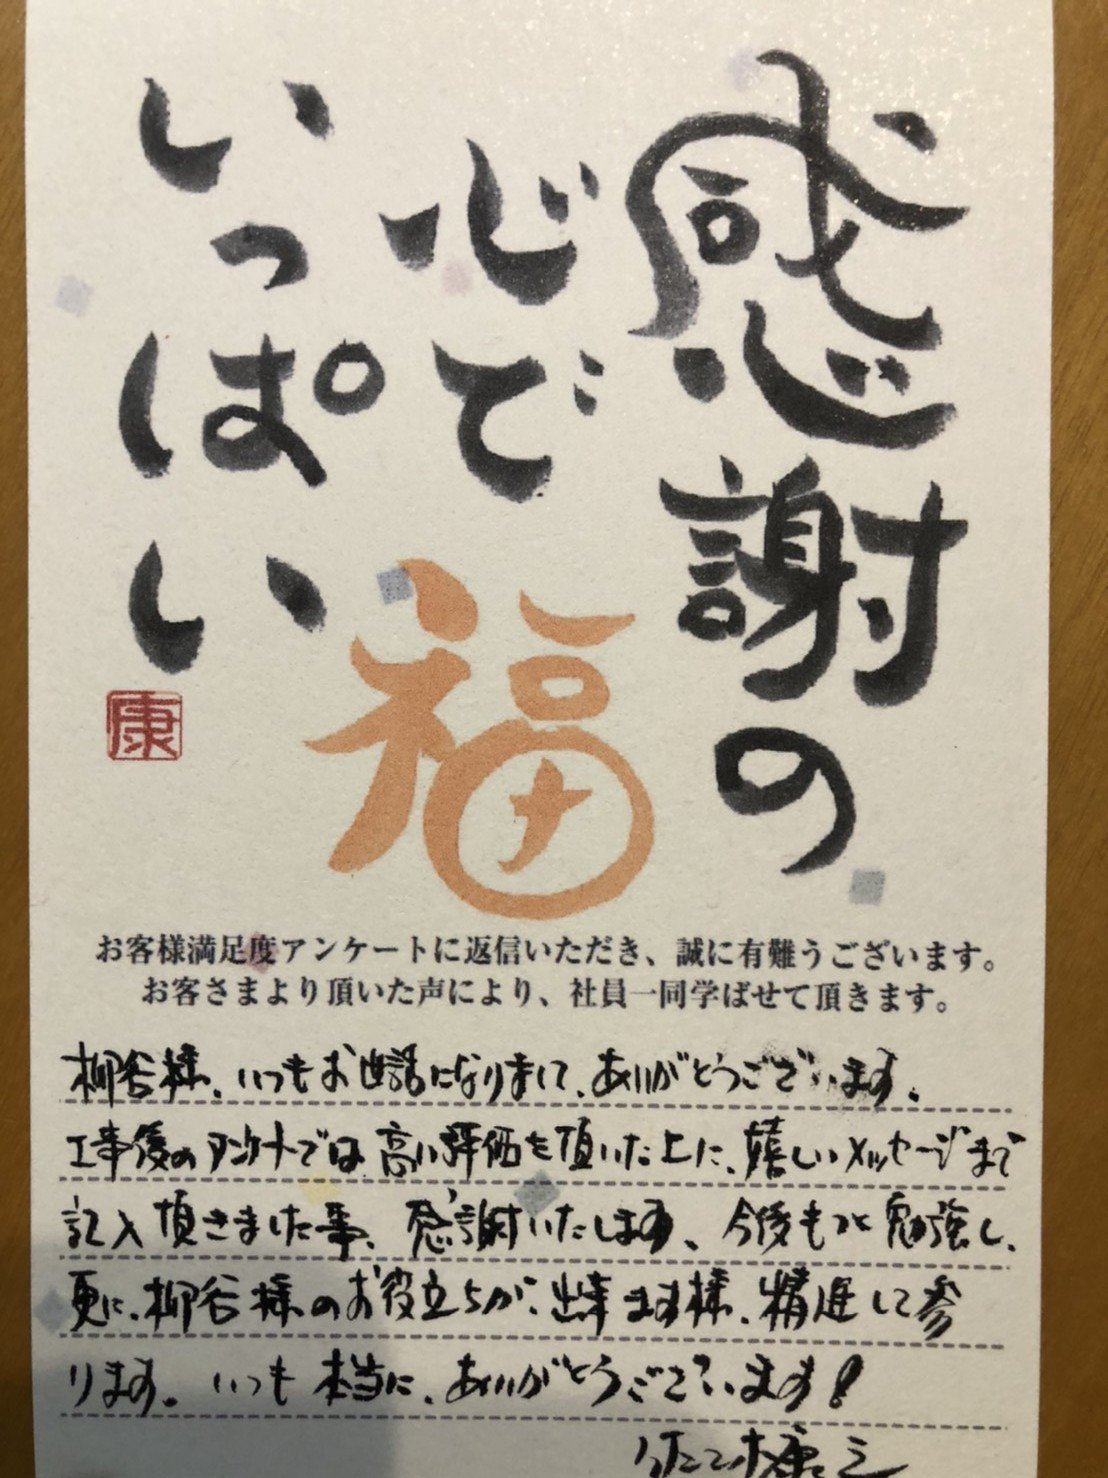 感謝の
心で
いっぱい
康
福
お客様満足度アンケートに返信いただき、誠に有難うございます。
お客さまより頂いた声により、社員一同学ばせて頂きます。
柳谷様、いつもお世話になりまして、ありがとうございます。
工事後のアンケートでは高い評価を頂いた上に、嬉しいメッセージまで
記入頂きました事、感謝いたします、今後もっと勉強し、
更に、柳谷様のお役立ちが、出来ます様、精進して参
ります。いつも本当に、ありがとうございます!